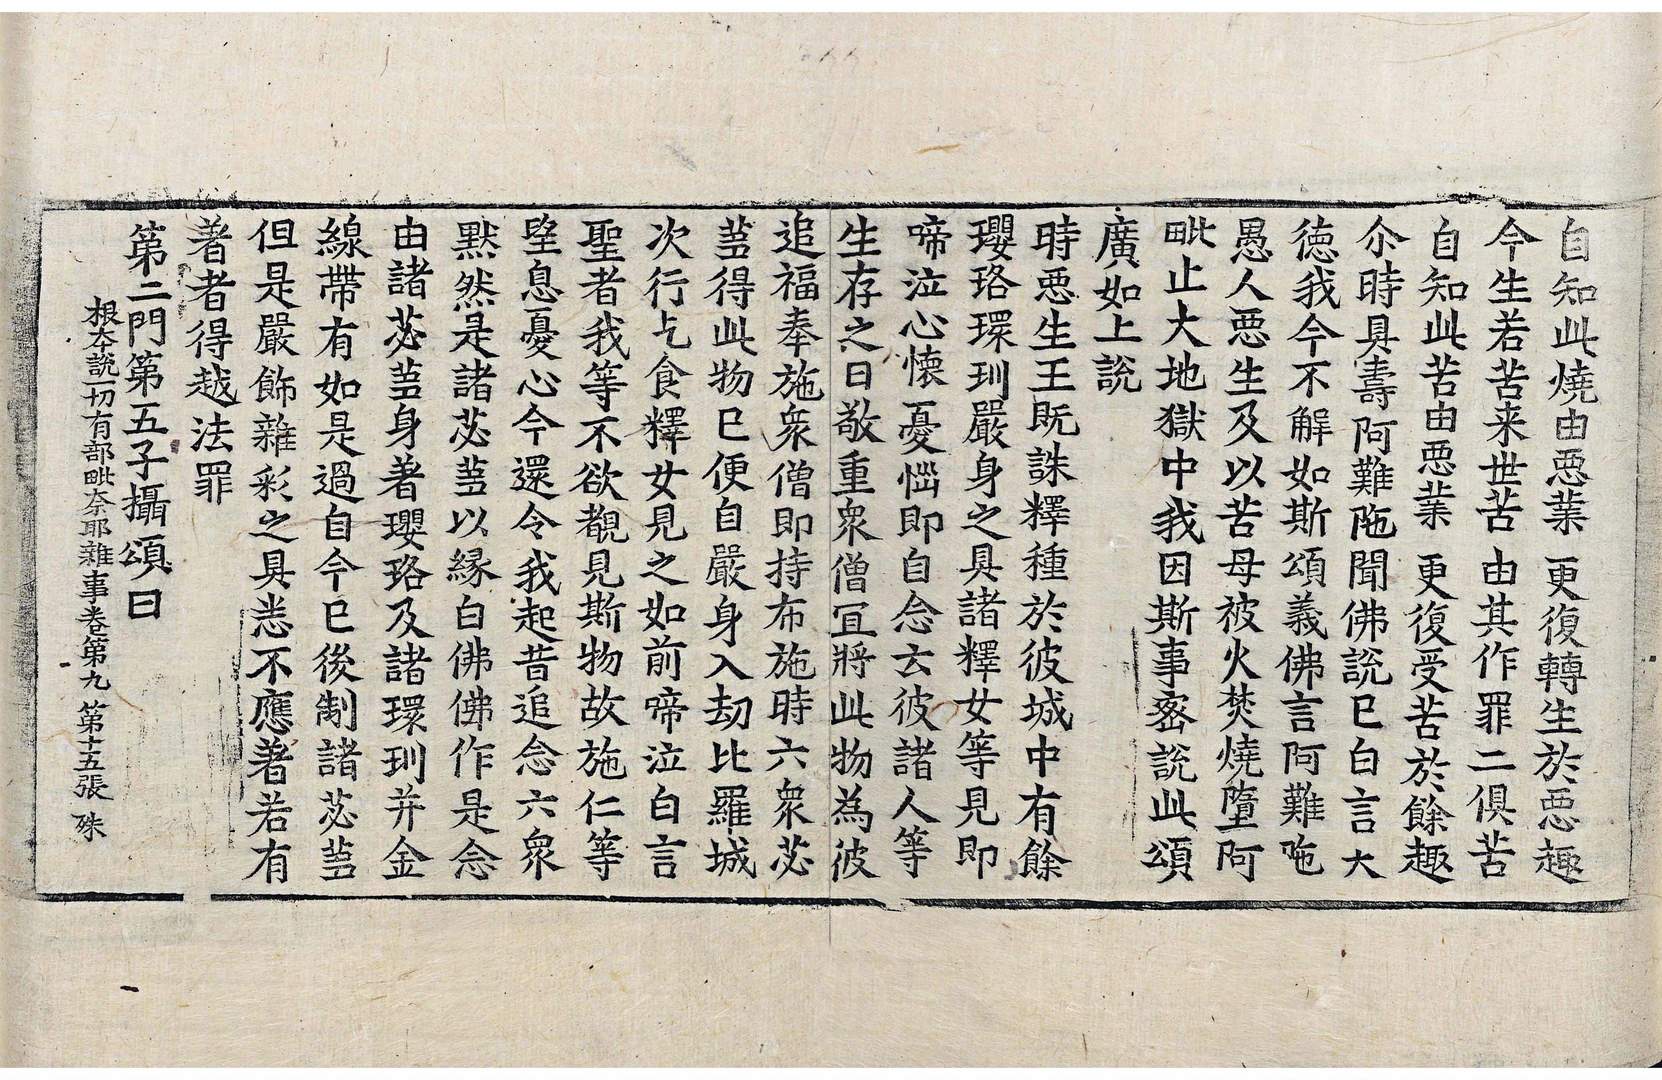 自知此燒由惡業 更復轉生於惡趣
今生若苦来世苦 由其作罪二俱苦
自知此苦由惡業 更復受苦於餘趣
尒時具壽阿難陁聞佛說已白言大
徳我今不解如斯頌義佛言阿難陁
愚人惡生及以苦母被火焚燒墮阿
毗止大地獄中我因斯事密說此頌
廣如上說
時惡生王既誅釋種於彼城中有餘
瓔珞環玔嚴身之具諸釋女等見即
啼泣心懷憂惱即自念云彼諸人等
生存之日敬重衆僧冝將此物為彼
追福奉施衆僧即持布施時六衆苾
蒭得此物已便自嚴身入劫比羅城
次行乞食釋女見之如前啼泣白言
聖者我等不欲覩見斯物故施仁等
望息憂心今還令我起昔追念六衆
默然是諸苾蒭以縁白佛佛作是念
由諸苾蒭身著瓔珞及諸環玔并金
線帶有如是過自今已後制諸苾蒭
但是嚴飾雜彩之具悉不應著若有
著者得越法罪
第二門第五子攝頌曰
根本說一切有部毗奈耶雜事卷第九 第十五張 殊